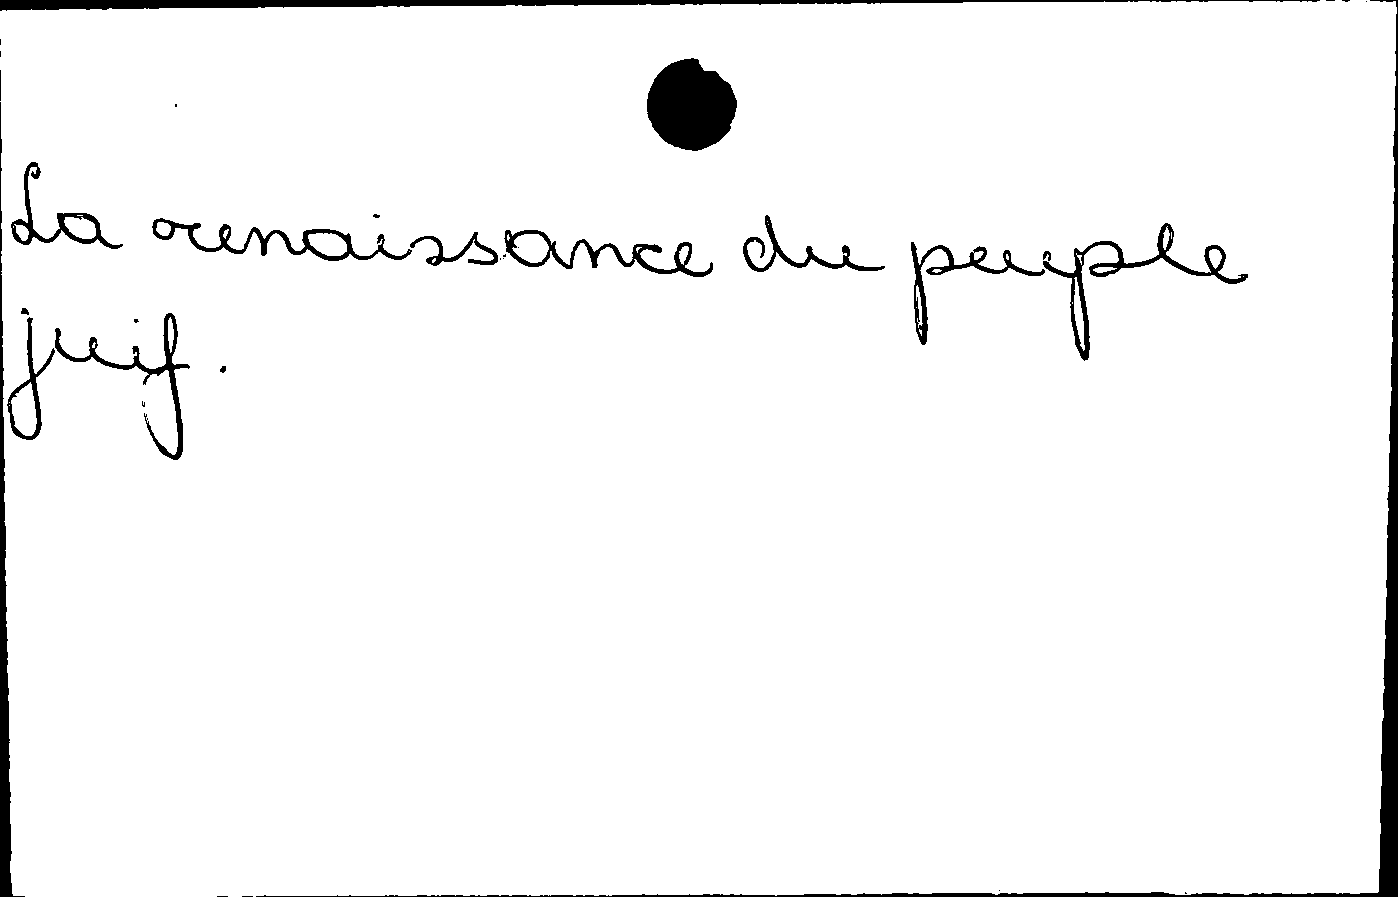 La renaissance du peuple
juif.